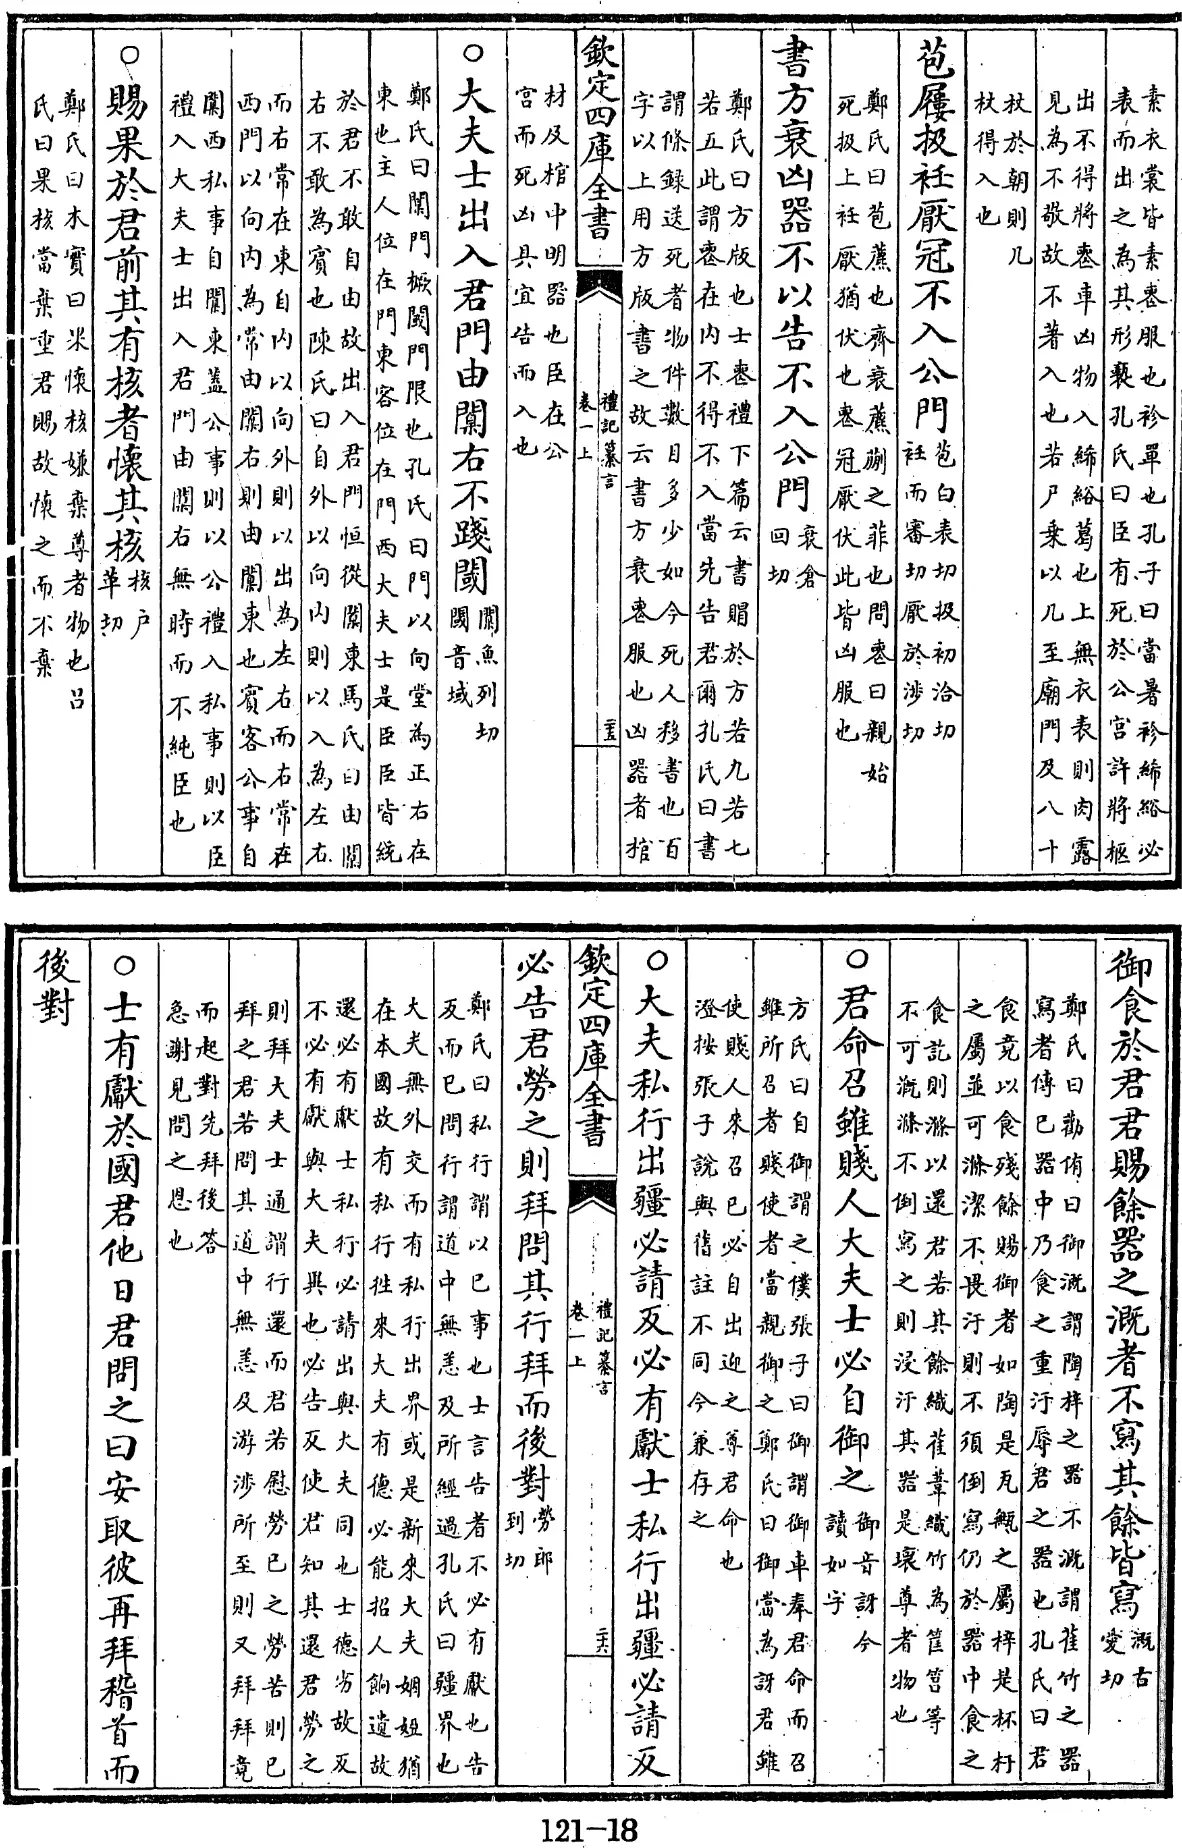 素衣裳皆素喪服也袗單也孔子曰當暑袗絺綌必
表而出之為其形褻孔氏曰臣有死於公宮許將柩
出不得將喪車凶物入絺綌葛也上無衣表則肉露
見為不敬故不著入也若尸乘以几至廟門及八十
杖於朝則几
杖得入也
苞屨扱衽厭冠不入公門苞白表切扱初洽切
衽而審切厭於涉切
鄭氏曰苞藨也齊衰藨蒯之菲也問喪曰親始
死扱上衽厭猶伏也喪冠厭伏此皆凶服也
書方衰凶器不以告不入公門衰倉
回切
鄭氏曰方版也士喪禮下篇云書賵於方若九若七
若五此謂喪在内不得不入當先告君爾孔氏曰書
謂條錄送死者物件數目多少如今死人移書也百
字以上用方版書之故云書方衰喪服也凶器者棺
欽定四庫全書
禮記纂言
卷一上
二十五
材及棺中明器也臣在公
宮而死凶具宜告而入也
○大夫士出入君門由闑右不踐閾闑魚列切
閾音域
鄭氏曰闑門橛閾門限也孔氏曰門以向堂為正右在
東也主人位在門東客位在門西大夫士是臣臣皆統
於君不敢自由故出入君門恒從闑東馬氏曰由闑
右不敢為賓也陳氏曰自外以向内則以入為左右
而右常在東自内以向外則以出為左右而右常在
西門以向内為常由闑右則由闑東也賓客公事自
闑西私事自闑東蓋公事則以公禮入私事則以臣
禮入大夫士出入君門由闑右無時而不純臣也
○賜果於君前其有核者懷其核核户
革切
鄭氏曰木實曰果懷核嫌棄尊者物也吕
氏曰果核當棄重君賜故懷之而不棄
御食於君君賜餘器之溉者不寫其餘皆寫溉古
愛切
鄭氏曰勸侑曰御溉謂陶梓之器不溉謂萑竹之器
寫者傳已器中乃食之重汙辱君之器也孔氏曰君
食竟以食殘餘賜御者如陶是瓦甒之屬梓是杯杅
之屬並可滌潔不畏汙則不須倒寫仍於器中食之
食訖則滌以還君若其餘織萑葦織竹為筐筥等
不可溉滌不倒寫之則浸汙其器是壞尊者物也
○君命召雖賤人大夫士必自御之御音訝今
讀如字
方氏曰自御謂之僕張子曰御謂御車奉君命而召
雖所召者賤使者當親御之鄭氏曰御當為訝君雖
使賤人來召已必自出迎之尊君命也
澄按張子說與舊註不同今兼存之
○大夫私行出疆必請反必有獻士私行出疆必請反
欽定四庫全書
禮記纂言
卷一上
二十六
必告君勞之則拜問其行拜而後對勞郎
到切
鄭氏曰私行謂以已事也士言告者不必有獻也告
反而已問行謂道中無恙及所經過孔氏曰疆界也
大夫無外交而有私行出界或是新來大夫姻婭猶
在本國故有私行往來大夫有德必能招人餉遺故
還必有獻士私行必請出與大夫同也士德劣故反
不必有獻與大夫異也必告反使君知其還君勞之
則拜大夫士通謂行還而君若慰勞已之勞苦則已
拜之君若問其道中無恙及游涉所至則又拜拜竟
而起對先拜後答
急謝見問之恩也
○士有獻於國君他日君問之曰安取彼再拜稽首而
後對
121-18